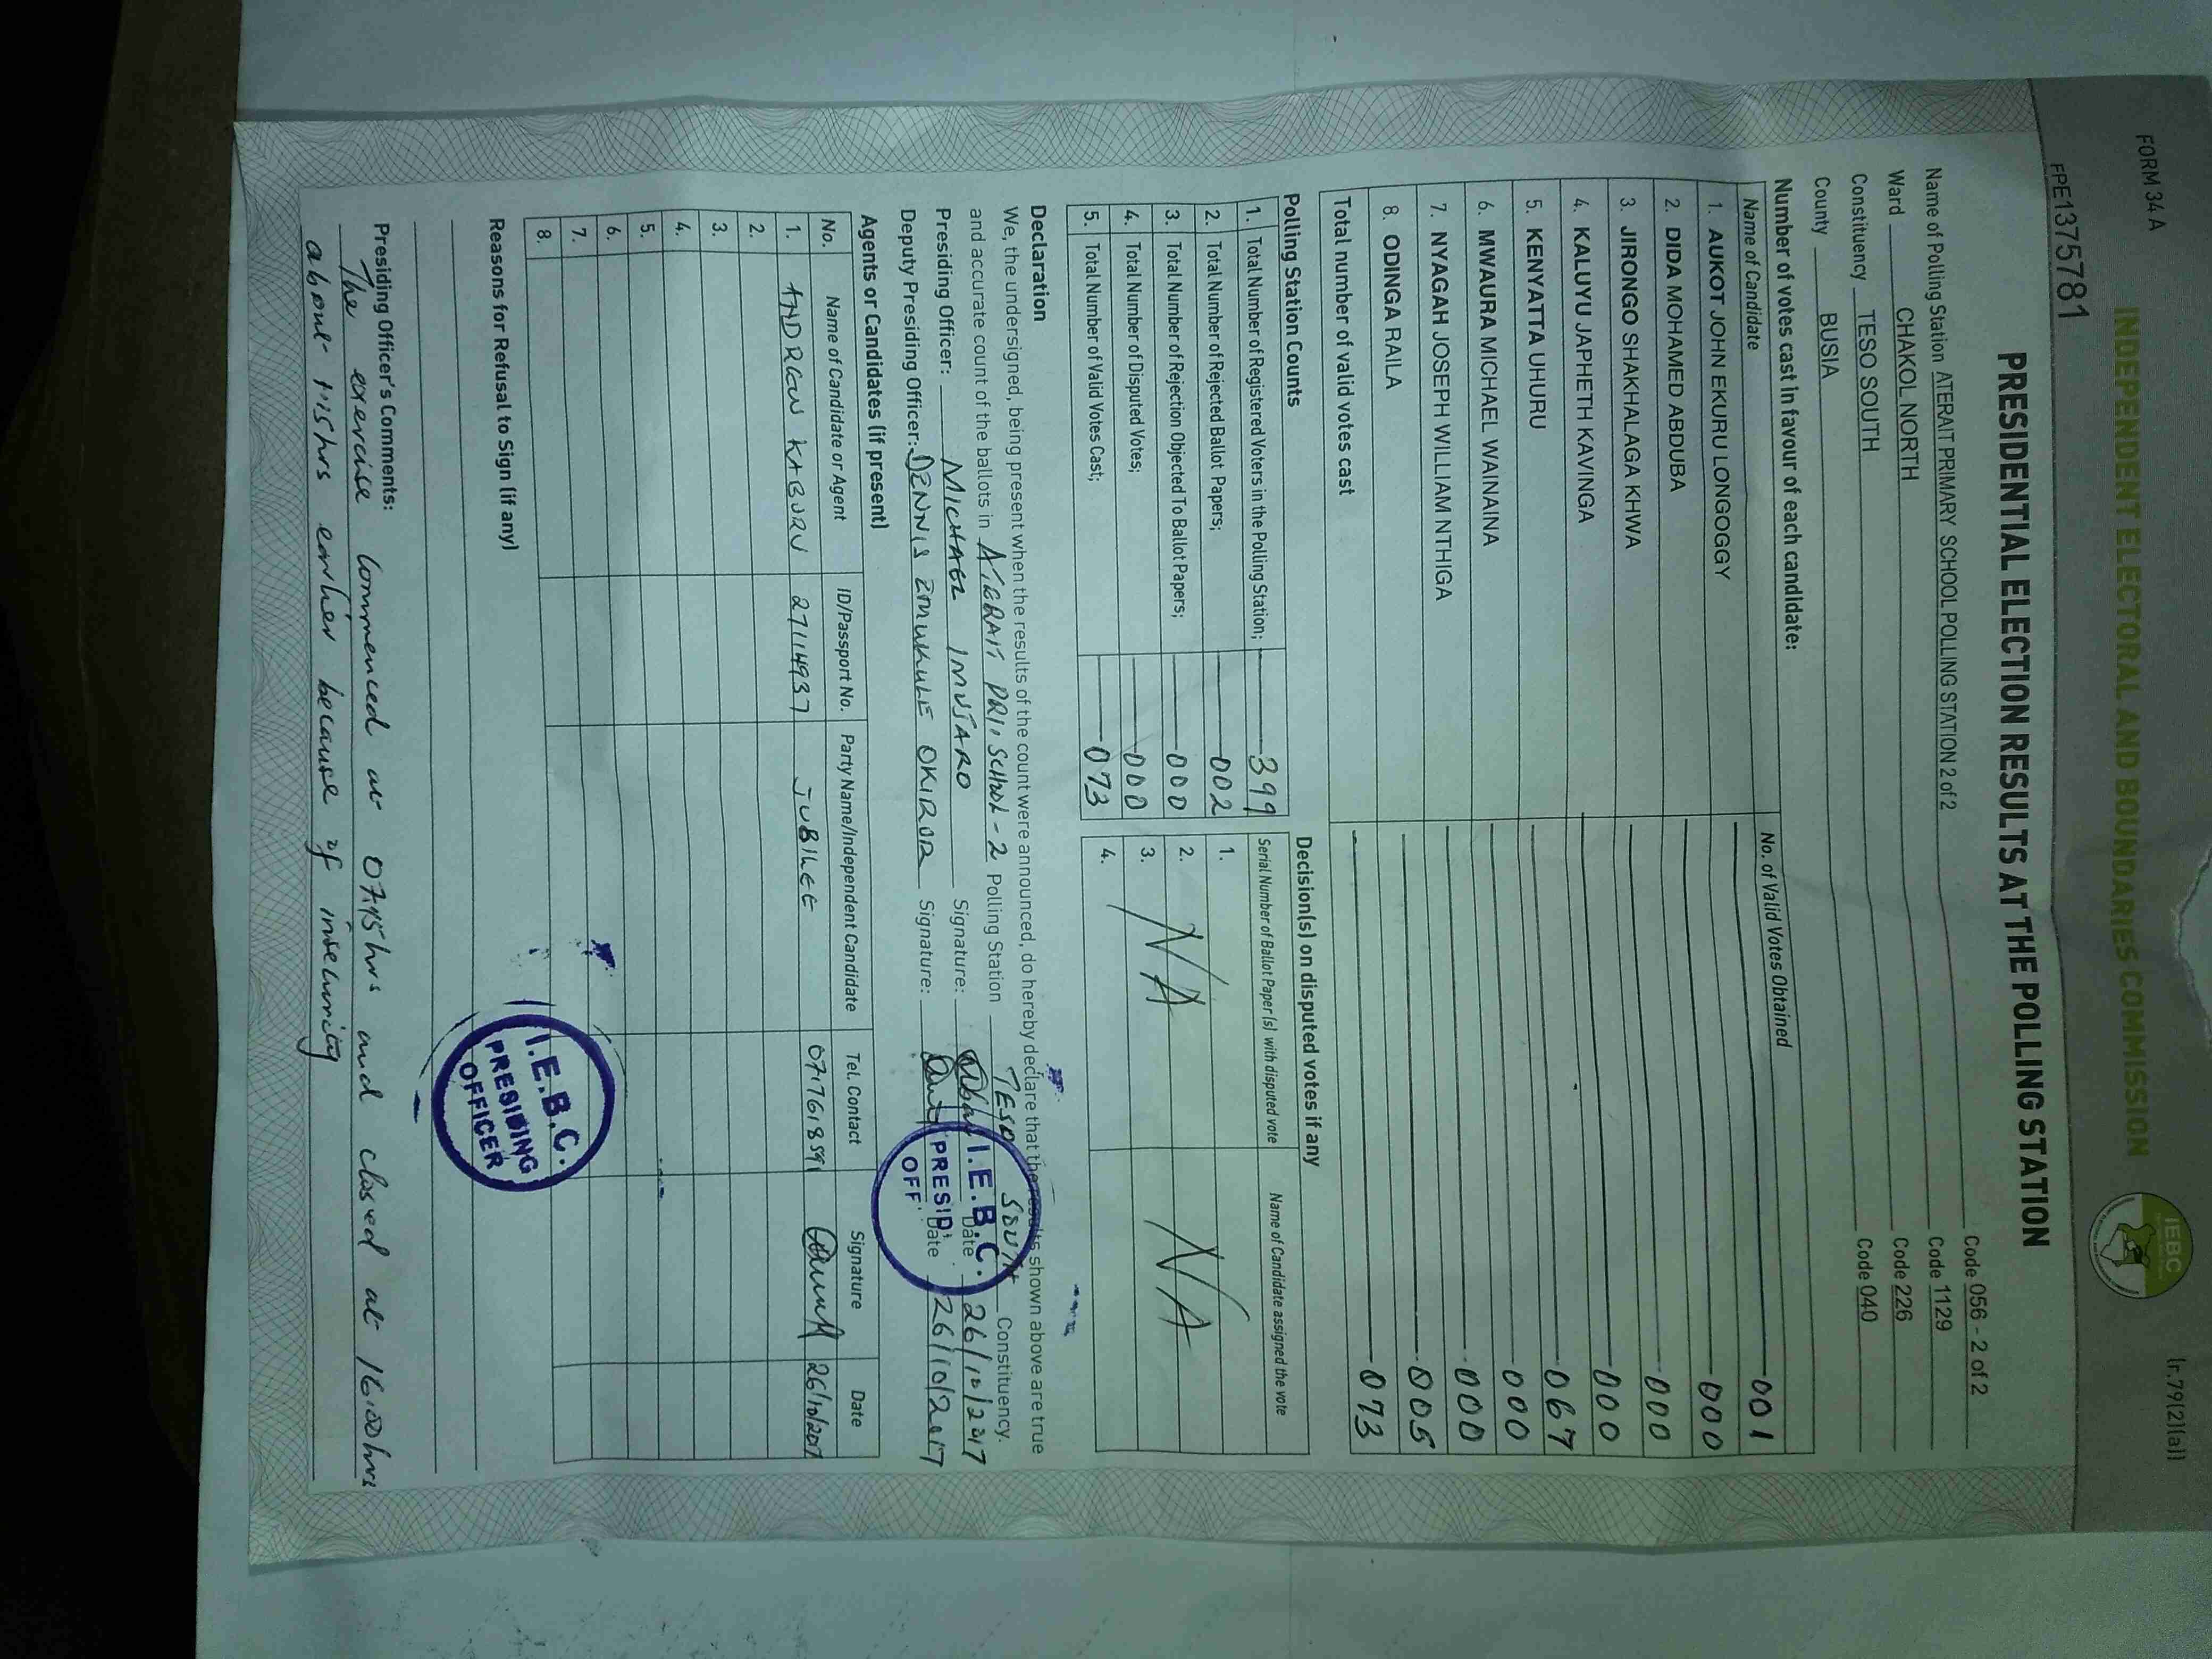 FORM 34 A
(r.79(2)(a))
INDEPENDENT ELECTORAL AND BOUNDARIES COMMISSION
IEBC
FPE1375781
PRESIDENTIAL ELECTION RESULTS AT THE POLLING STATION
Name of Polling Station ATERAIT PRIMARY SCHOOL POLLING STATION 2 of 2 Code 056 - 2 of 2
Ward CHAKOL NORTH Code 1129
Constituency TESO SOUTH Code 226
County BUSIA Code 040
Number of votes cast in favour of each candidate:
Name of Candidate No. of Valid Votes Obtained
1. AUKOT JOHN EKURU LONGOGGY 001
2. DIDA MOHAMED ABDUBA 000
3. JIRONGO SHAKHALAGA KHWA 000
4. KALUYU JAPHETH KAVINGA 000
5. KENYATTA UHURU 067
6. MWAURA MICHAEL WAINAINA 000
7. NYAGAH JOSEPH WILLIAM NTHIGA 000
8. ODINGA RAILA 005
Total number of valid votes cast 073
Polling Station Counts
1. Total Number of Registered Voters in the Polling Station; 399
2. Total Number of Rejected Ballot Papers; 002
3. Total Number of Rejection Objected To Ballot Papers; 000
4. Total Number of Disputed Votes; 000
5. Total Number of Valid Votes Cast; 073
Decision(s) on disputed votes if any
Serial Number of Ballot Paper (s) with disputed vote Name of Candidate assigned the vote
1.
2. N/A N/A
3.
4.
Declaration
We, the undersigned, being present when the results of the count were announced, do hereby declare that the results shown above are true
and accurate count of the ballots in ATERAIT PRI, SCHOOL - 2 Polling Station TESO SOUTH Constituency.
Presiding Officer: MICHAEL IMUSARO Signature: Date 26/10/2017
Deputy Presiding Officer: DENNIS EMUKULE OKIROR Signature: Date 26/10/2017
I.E.B.C.
PRESID.
OFF.
Agents or Candidates (if present)
No. Name of Candidate or Agent ID/Passport No. Party Name/Independent Candidate Tel. Contact Signature Date
1. KABURU 27114937 JUBILEE 0717618591 26/10/2017
2.
3.
4.
5.
6.
7.
8.
I.E.B.C.
PRESIDING
OFFICER
Reasons for Refusal to Sign (if any)
Presiding Officer's Comments:
The exercise commenced at 0745hrs and closed at 16:00hrs
about 1115hrs earlier because of insecurity